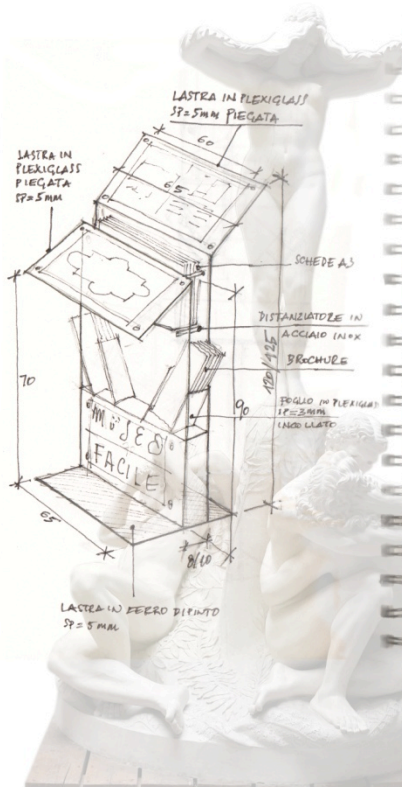 LASTRA IN PLEXIGLASS
SP=5mm PIEGATA
60
LASTRA IN
PLEXIGLASS
PIEGATA
SP=5mm
65
SCHEDE A3
DISTANZIATORE IN
ACCIAIO INOX
BROCHURE
120/125
70
90
FOGLIO IN PLEXIGLAS
SP=3mm
INCOLLATO
MUSEO
FACILE
65
8/10
LASTRA IN FERRO DIPINTO
SP=5mm